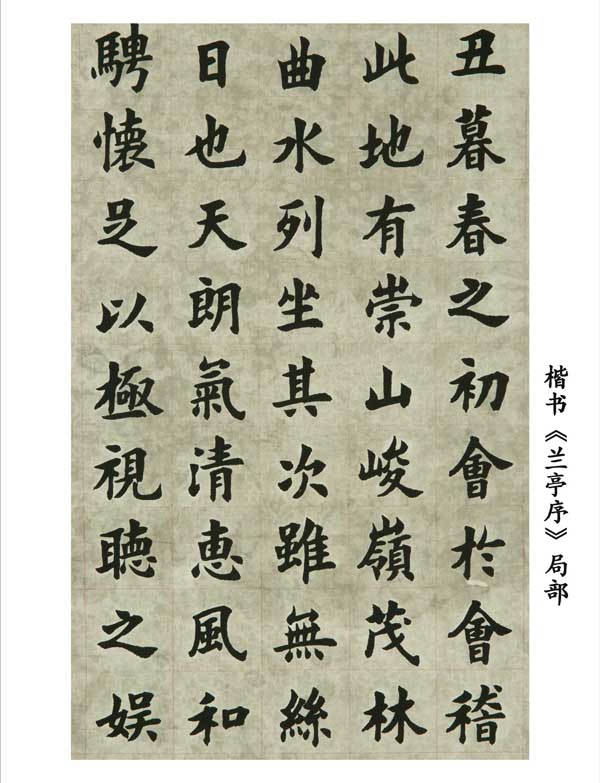 丑暮春之初會於會稽
此地有崇山峻嶺茂林
曲水列坐其次雖無絲
日也天朗氣清惠風和
騁懷足以極視聽之娱
楷书《兰亭序》局部